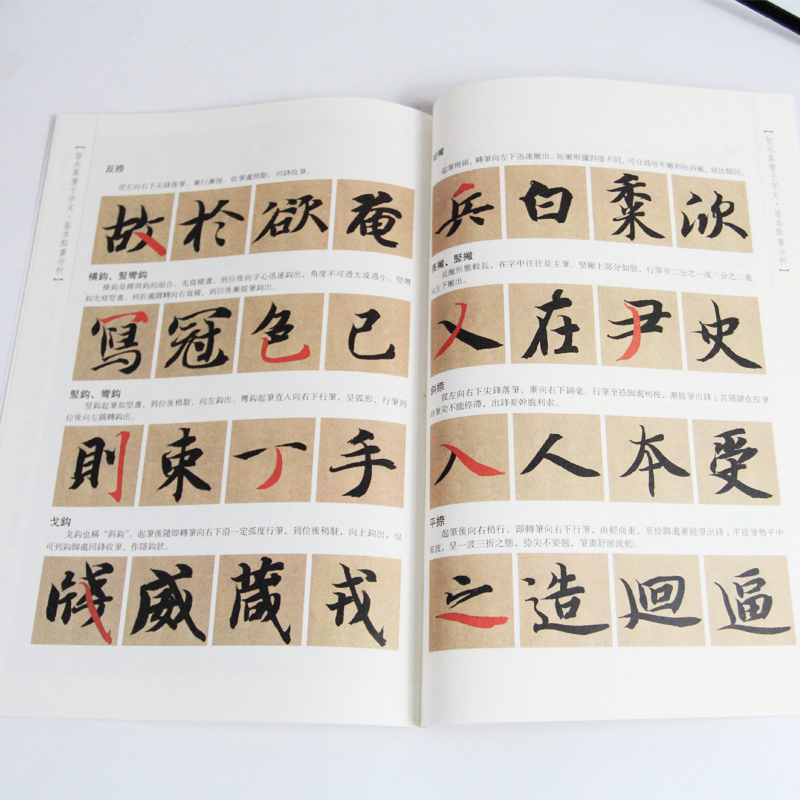 【智永真書千字文·基本點畫分析】
反捺
從左向右下尖鋒落筆,漸行漸按,收筆處稍駐,回鋒收筆。
故於欲
橫鈎、竪彎鈎
橫鈎是橫與鈎的組合。先寫橫畫,到位後向字心迅速鈎出,角度不可過大或過小。竪彎
鈎先寫竪畫,到折處圓轉向右寫橫,到位後漸提筆鈎出。
寫冠色已
竪鈎、彎鈎
竪鈎起筆如竪畫,到位後稍駐,向左鈎出。彎鈎起筆直入向右下行筆,呈弧形,行筆到
位後向左圓轉鈎出。
則束丁手
戈鈎
戈鈎也稱“斜鈎”。起筆後隨即轉筆向右下沿一定弧度行筆,到位後稍駐,向上鈎出,也
可到鈎脚處回鋒收筆,作隱鈎狀。
牋威葳戎
撇
起筆稍頓,轉筆向左下迅速撇出。短撇根據斜度不同,可分爲短平撇和短斜撇,寫法類同。
兵白
長撇、竪撇
長撇形態較長,在字中往往是主筆。竪撇上部分如竪,行筆至二分之一或三分之二處,
向左下撇出。
在尹史
斜捺
從左向右下尖鋒落筆,漸向右下鋪毫。行筆至捺脚處稍按,漸提筆出鋒;其關鍵在捺筆
捺筆尖不能停滯,出鋒要幹脆利索。
入人本受
平捺
起筆後向右稍行,即轉筆向右下行筆,由輕而重,至捺脚處漸提筆出鋒;平捺筆勢平中
寓波,呈一波三折之態,捺尖不要翹,筆畫舒展流動。
之造迴逼
【智永真書千字文·基本點畫分析】